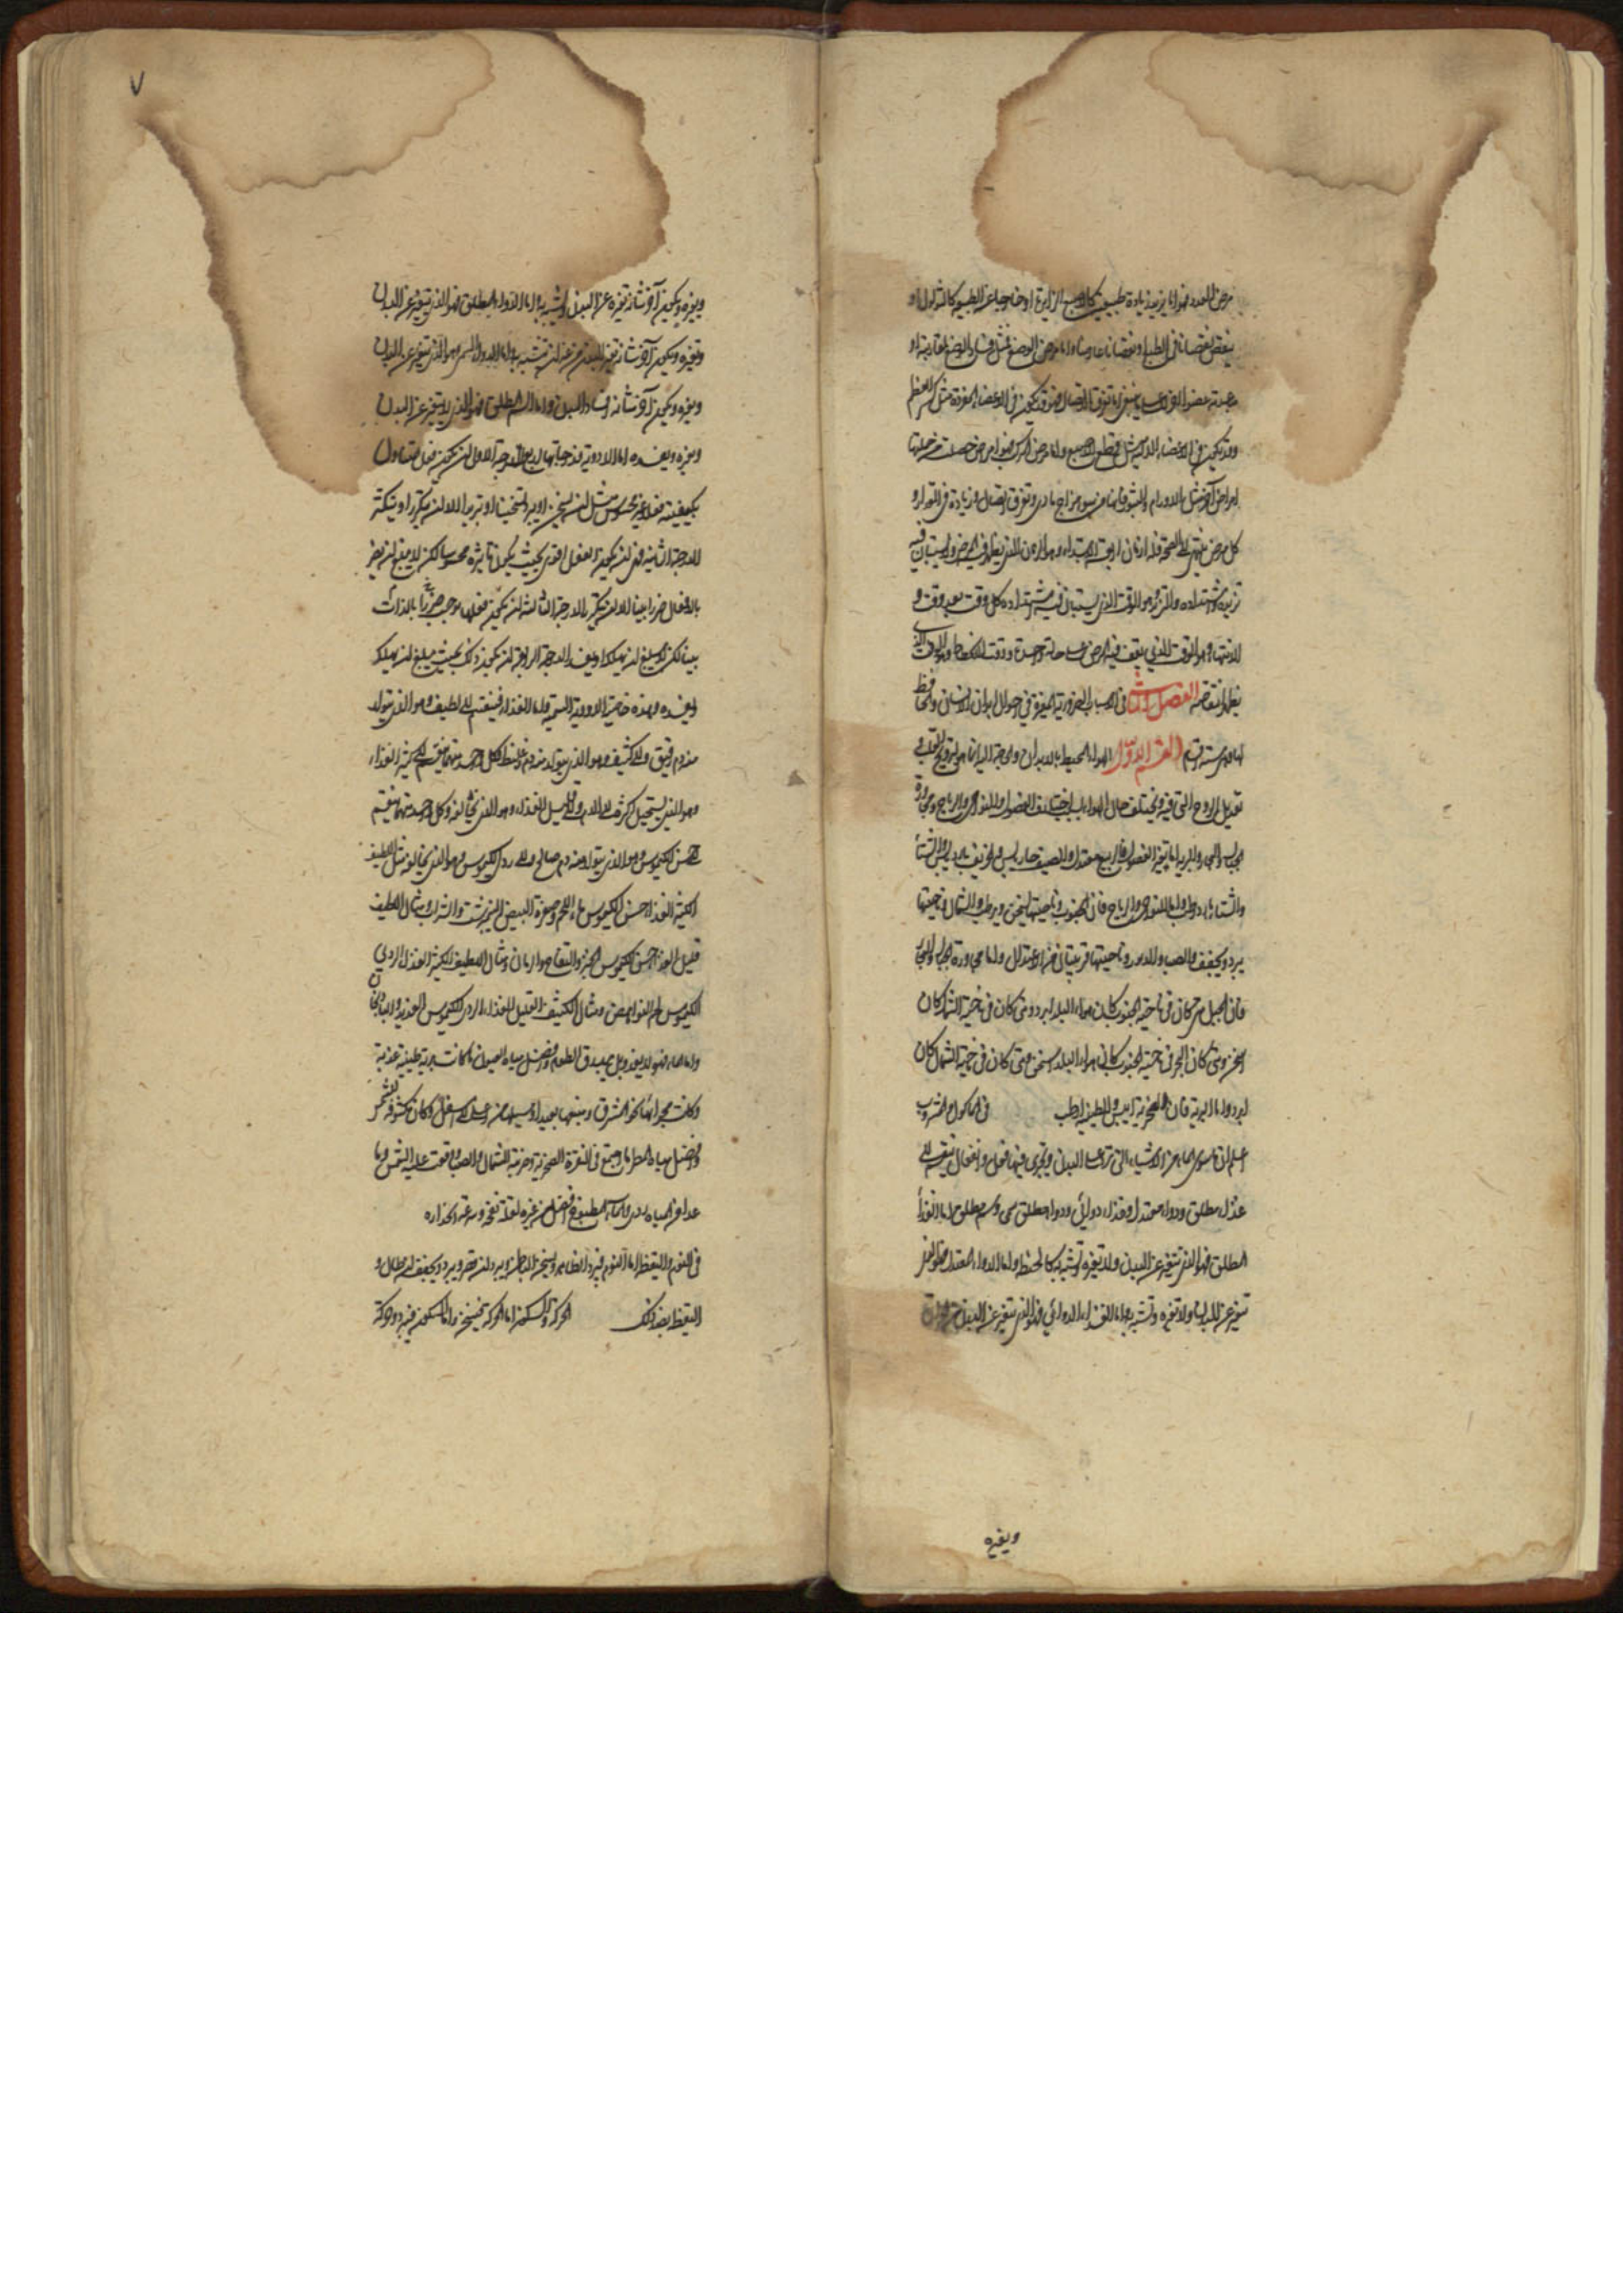 مرض العدد فهو اما يزيد زيادة طبيعية كالاصبع الزايدة او خارجا عن الطبيعة كالثؤلول او
ينقص نقصانا في الطبع او نقصانا عارضا واما مرض الوضع مثل فساد الوضع لمقاربة او
مباعدة عضو الى واما تفرق الاتصال فقد يكون في الاعضاء المفردة مثل كسر العظم
وقد يكون في الاعضاء الالية مثل قطع الاصبع واما مرض المركب فهو امراض حصلت من جملتها
امراض آخر مثل الاورام والبثور فانها من سوء مزاج مادي وتفرق اتصال وزيادة في المقدار و
كل مرض ينتهي الى الصحة فله ازمان اربعة الابتداء وهو الزمان الذي يظهر فيه المرض ولا يستبان فيه
تزيده واشتداده والتزيد وهو الوقت الذي يستبان فيه اشتداده كل وقت بعد وقت و
الانتهاء وهو الوقت الذي يقف فيه المرض على حالة واحدة ووقت الانحطاط وهو الوقت الذي
يظهر انتقاصه الفصل الثالث في الاسباب الضرورية المغيرة في احوال ابدان الانسان والحافظ
لها وهي ستة قسم القسم الاول الهواء المحيط بالابدان والحاجة اليه انما هو لترويح القلب و
تعديل الروح التي فيه ويختلف حال الهواء باختلاف الفصول والنواحي والرياح ومجاورة
الجبال والبحار والتربة اما تغير الفصول فالربيع معتدل والصيف حار يابس والخريف بارد يابس والشتاء
والشتاء بارد رطب واما النواحي والرياح فان الجنوب وناحيتها يسخن ويرطب والشمال وناحيتها
يبرد ويجفف والصبا والدبور وناحيتهما قريبتان من الاعتدال واما مجاورة الجبال والبحار
فان الجبل متى كان في ناحية الجنوب كان هواء البلد ابرد ومتى كان في ناحية الشمال كان
اسخن ومتى كان البحر في ناحية الجنوب كان هواء البلد اسخن ومتى كان في ناحية الشمال كان
ابرد واما التربة فان الصخرية ايبس والطينية ارطب في المأكول والمشروب
اعلم ان ما سوى الماء من الاشياء التي ترد على البدن ويجري فيها فعل وانفعال ينقسم الى
غذاء مطلق ودواء معتدل وغذاء دوائي ودواء مطلق سمي وسم مطلق اما الغذاء
المطلق فهو الذي يتغير عن البدن ولا يغيره وتشبه به كالحنطة واما الدواء المعتدل فهو الذي
يتغير عن البدن ولا يغيره وتشبه به واما الغذاء الدوائي فهو الذي يتغير عن البدن
ويغيره
٧
ويغيره ويكون آخر شانه تغيره عن البدن وتشبه به اما الدواء المطلق فهو الذي يتغير عن البدن
ويغيره ويكون آخر شانه تغير البدن من غير ان تتشبه به واما الدواء السمي وهو الذي يتغير عن البدن
ويغيره ويكون آخر شانه افساد البدن واما السم المطلق فهو الذي لا يتغير عن البدن
ويغيره ويفسده اما الادوية فدرجاتها اربع الدرجة الاولى ان يكون فعل المتناول
بكيفيته فعلا غير محسوس مثل ان يسخن او يبرد تسخينا او تبريدا الا ان يتكرر او يتكثر
الدرجة الثانية فهي ان يكون الفعل اقوى بحيث يكون تاثيره محسوسا لكن لا يبلغ ان يضر
بالافعال ضررا بينا الا ان يتكرر الدرجة الثالثة ان يكون فعلها موجب ضررا بالذات
بينا لكن لا يبلغ ان يهلك او يفسد الدرجة الرابعة ان يكون ذلك بحيث يبلغ ان يهلك
او يفسد وهذه خاصية الادوية السمية واما الغذاء فينقسم الى لطيف وهو الذي يتولد
منه دم رقيق والى كثيف وهو الذي يتولد منه دم غليظ وكل واحد منهما ينقسم الى كثير الغذاء
وهو الذي يستحيل اكثره الى الدم والى قليل الغذاء وهو الذي يخالفه وكل واحد منهما ينقسم
الى حسن الكيموس وهو الذي يتولد منه دم صالح والى ردي الكيموس وهو الذي يخالفه مثل اللطيف
الكثير الغذاء حسن الكيموس ماء اللحم وصفرة البيض النيمرشت والشراب ومثال اللطيف
قليل الغذاء حسن الكيموس الخبز والتفاح والرمان ومثال اللطيف الكثير الغذاء الردي
الكيموس لحم النواهض ومثال الكثيف القليل الغذاء الردي الكيموس القديد والباذنجان
واما الماء فهو لا يغذو بل يبدرق الطعام وافضل مياه العيون ما كانت برية طينية عذبة
وكانت مجراها نحو المشرق ومنبعها بعيدا وسيلها من اعلى الى اسفل وكان مكشوفة للشمس
وافضل مياه المطر ما وجتمع في النقرة الصخرية وضربه الشمال والصبا وقعت عليه الشمس وما
عدا هذه المياه ردي والماء المطبوخ افضل من غيره لقلة نفخه وسرعة انحداره
في النوم واليقظة اما النوم فيبرد الظاهر ويسخن الباطن ويبرد ان قصر ويبرد ويجفف ان طال و
اليقظة بضد ذلك الحركة والسكون اما الحركة فيسخن واما السكون فيبرد وحركة